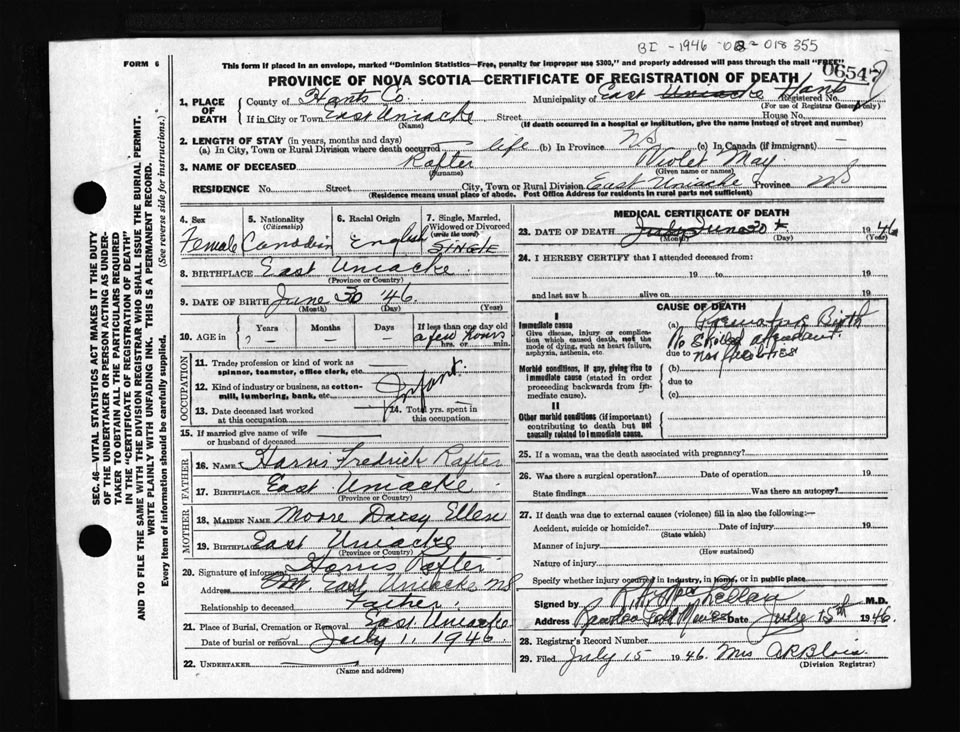 BI -1946 -02-018355
FORM 6
This form if placed in an envelope, marked "Dominion Statistics—Free, penalty for improper use $300," and properly addressed will pass through the mail "FREE"
PROVINCE OF NOVA SCOTIA—CERTIFICATE OF REGISTRATION OF DEATH
06547
1. PLACE OF DEATH
County of Hants Co. Municipality of East Uniacke Hants Registered No.
(For use of Registrar General only)
If in City or Town East Uniacke Street House No.
(Name) (If death occurred in a hospital or institution, give the name instead of street and number)
2. LENGTH OF STAY (in years, months and days)
(a) In City, Town or Rural Division where death occurred life (b) In Province NS (c) In Canada (if immigrant)
3. NAME OF DECEASED Rafter Violet May
(Surname) (Given name or names)
RESIDENCE No. Street City, Town or Rural Division East Uniacke Province NS
(Residence means usual place of abode. Post Office Address for residents in rural parts not sufficient)
4. Sex 5. Nationality (Citizenship) 6. Racial Origin 7. Single, Married, Widowed or Divorced (write the word)
Female Canadian English SINGLE
8. BIRTHPLACE East Uniacke
(Province or Country)
9. DATE OF BIRTH June 30 46
(Month) (Day) (Year)
10. AGE in Years Months Days If less than one day old
a few hours
hrs. or min.
OCCUPATION
11. Trade, profession or kind of work as spinner, teamster, office clerk, etc.
12. Kind of industry or business, as cotton-mill, lumbering, bank, etc.
Infant
13. Date deceased last worked at this occupation 14. Total yrs. spent in this occupation
15. If married give name of wife or husband of deceased
FATHER
16. NAME Harris Fredrick Rafter
17. BIRTHPLACE East Uniacke
(Province or Country)
MOTHER
18. MAIDEN NAME Moore Daisy Ellen
19. BIRTHPLACE East Uniacke
(Province or Country)
20. Signature of informant Harris Rafter
Address East Uniacke NS
Relationship to deceased Father
21. Place of Burial, Cremation or Removal East Uniacke
Date of burial or removal July 1, 1946
22. UNDERTAKER
(Name and address)
MEDICAL CERTIFICATE OF DEATH
23. DATE OF DEATH July June 30 1946
(Month) (Day) (Year)
24. I HEREBY CERTIFY that I attended deceased from:
19 to 19
and last saw h alive on 19
CAUSE OF DEATH
I
Immediate cause
Give disease, injury or complication which caused death, not the mode of dying, such as heart failure, asphyxia, asthenia, etc.
(a) Premature Birth
No Skilled attendant
due to
nor facilities
Morbid conditions, if any, giving rise to immediate cause (stated in order proceeding backwards from immediate cause).
(b)
due to
(c)
II
Other morbid conditions (if important) contributing to death but not causally related to immediate cause.
25. If a woman, was the death associated with pregnancy?
26. Was there a surgical operation? Date of operation 19
State findings Was there an autopsy?
27. If death was due to external causes (violence) fill in also the following:—
Accident, suicide or homicide? Date of injury 19
(State which)
Manner of injury
(How sustained)
Nature of injury
Specify whether injury occurred in industry, in home, or in public place
Signed by M.D.
Address Date July 15th 1946.
28. Registrar's Record Number
29. Filed July 15 1946. Mrs A R Blois.
(Division Registrar)
SEC. 46—VITAL STATISTICS ACT MAKES IT THE DUTY
OF THE UNDERTAKER OR PERSON ACTING AS UNDER-
TAKER TO OBTAIN ALL THE PARTICULARS REQUIRED
IN THE "CERTIFICATE OF REGISTRATION OF DEATH"
AND TO FILE THE SAME WITH THE DIVISION REGISTRAR WHO SHALL ISSUE THE BURIAL PERMIT.
WRITE PLAINLY WITH UNFADING INK. THIS IS A PERMANENT RECORD.
Every item of information should be carefully supplied. (See reverse side for instructions.)